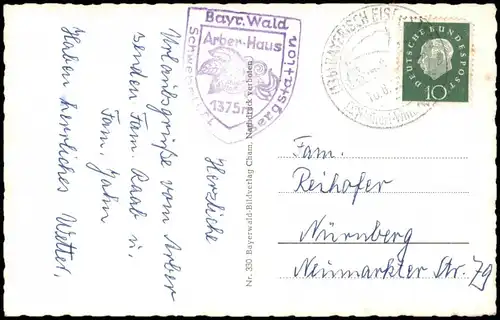 Bayr. Wald
Arber-Haus
1375m
Bergstation
(13b) BAYERISCH EISENSTEIN
DEUTSCHE BUNDESPOST
10
Herzliche
Urlaubsgrüße vom Arber
senden Fam. Raab u.
Fam. Jahn
Haben herrliches Wetter.
Nr. 330 Bayerwald-Bildverlag Cham, Nachdruck verboten
Fam.
Reihofer
Nürnberg
Neumarkter Str. 79